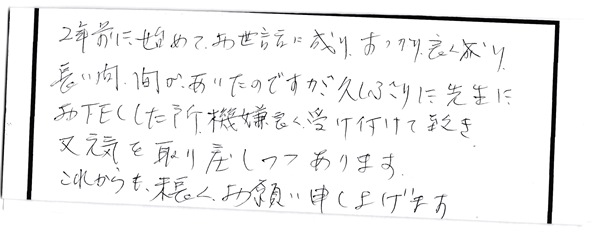 2年前に始めて、お世話に成り、すっかり良く成り、
長い間、間があいたのですが久しぶりに先生に
おTELした所、機嫌良く受け付けて頂き
又元気を取り戻しつつあります。
これからも、末長く、お願い申し上げます